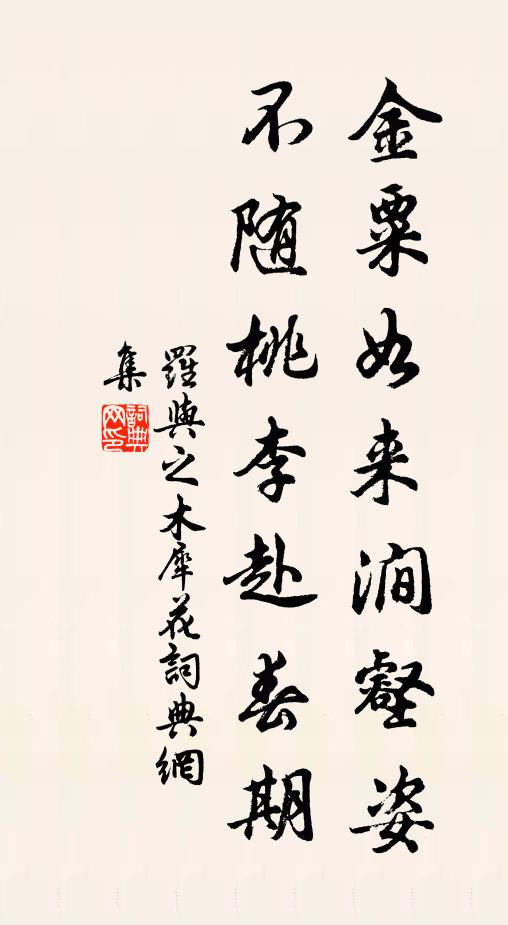 金粟如来澗壑姿
不随桃李赴春期
羅與之木犀花詞典網
集
詞典网印